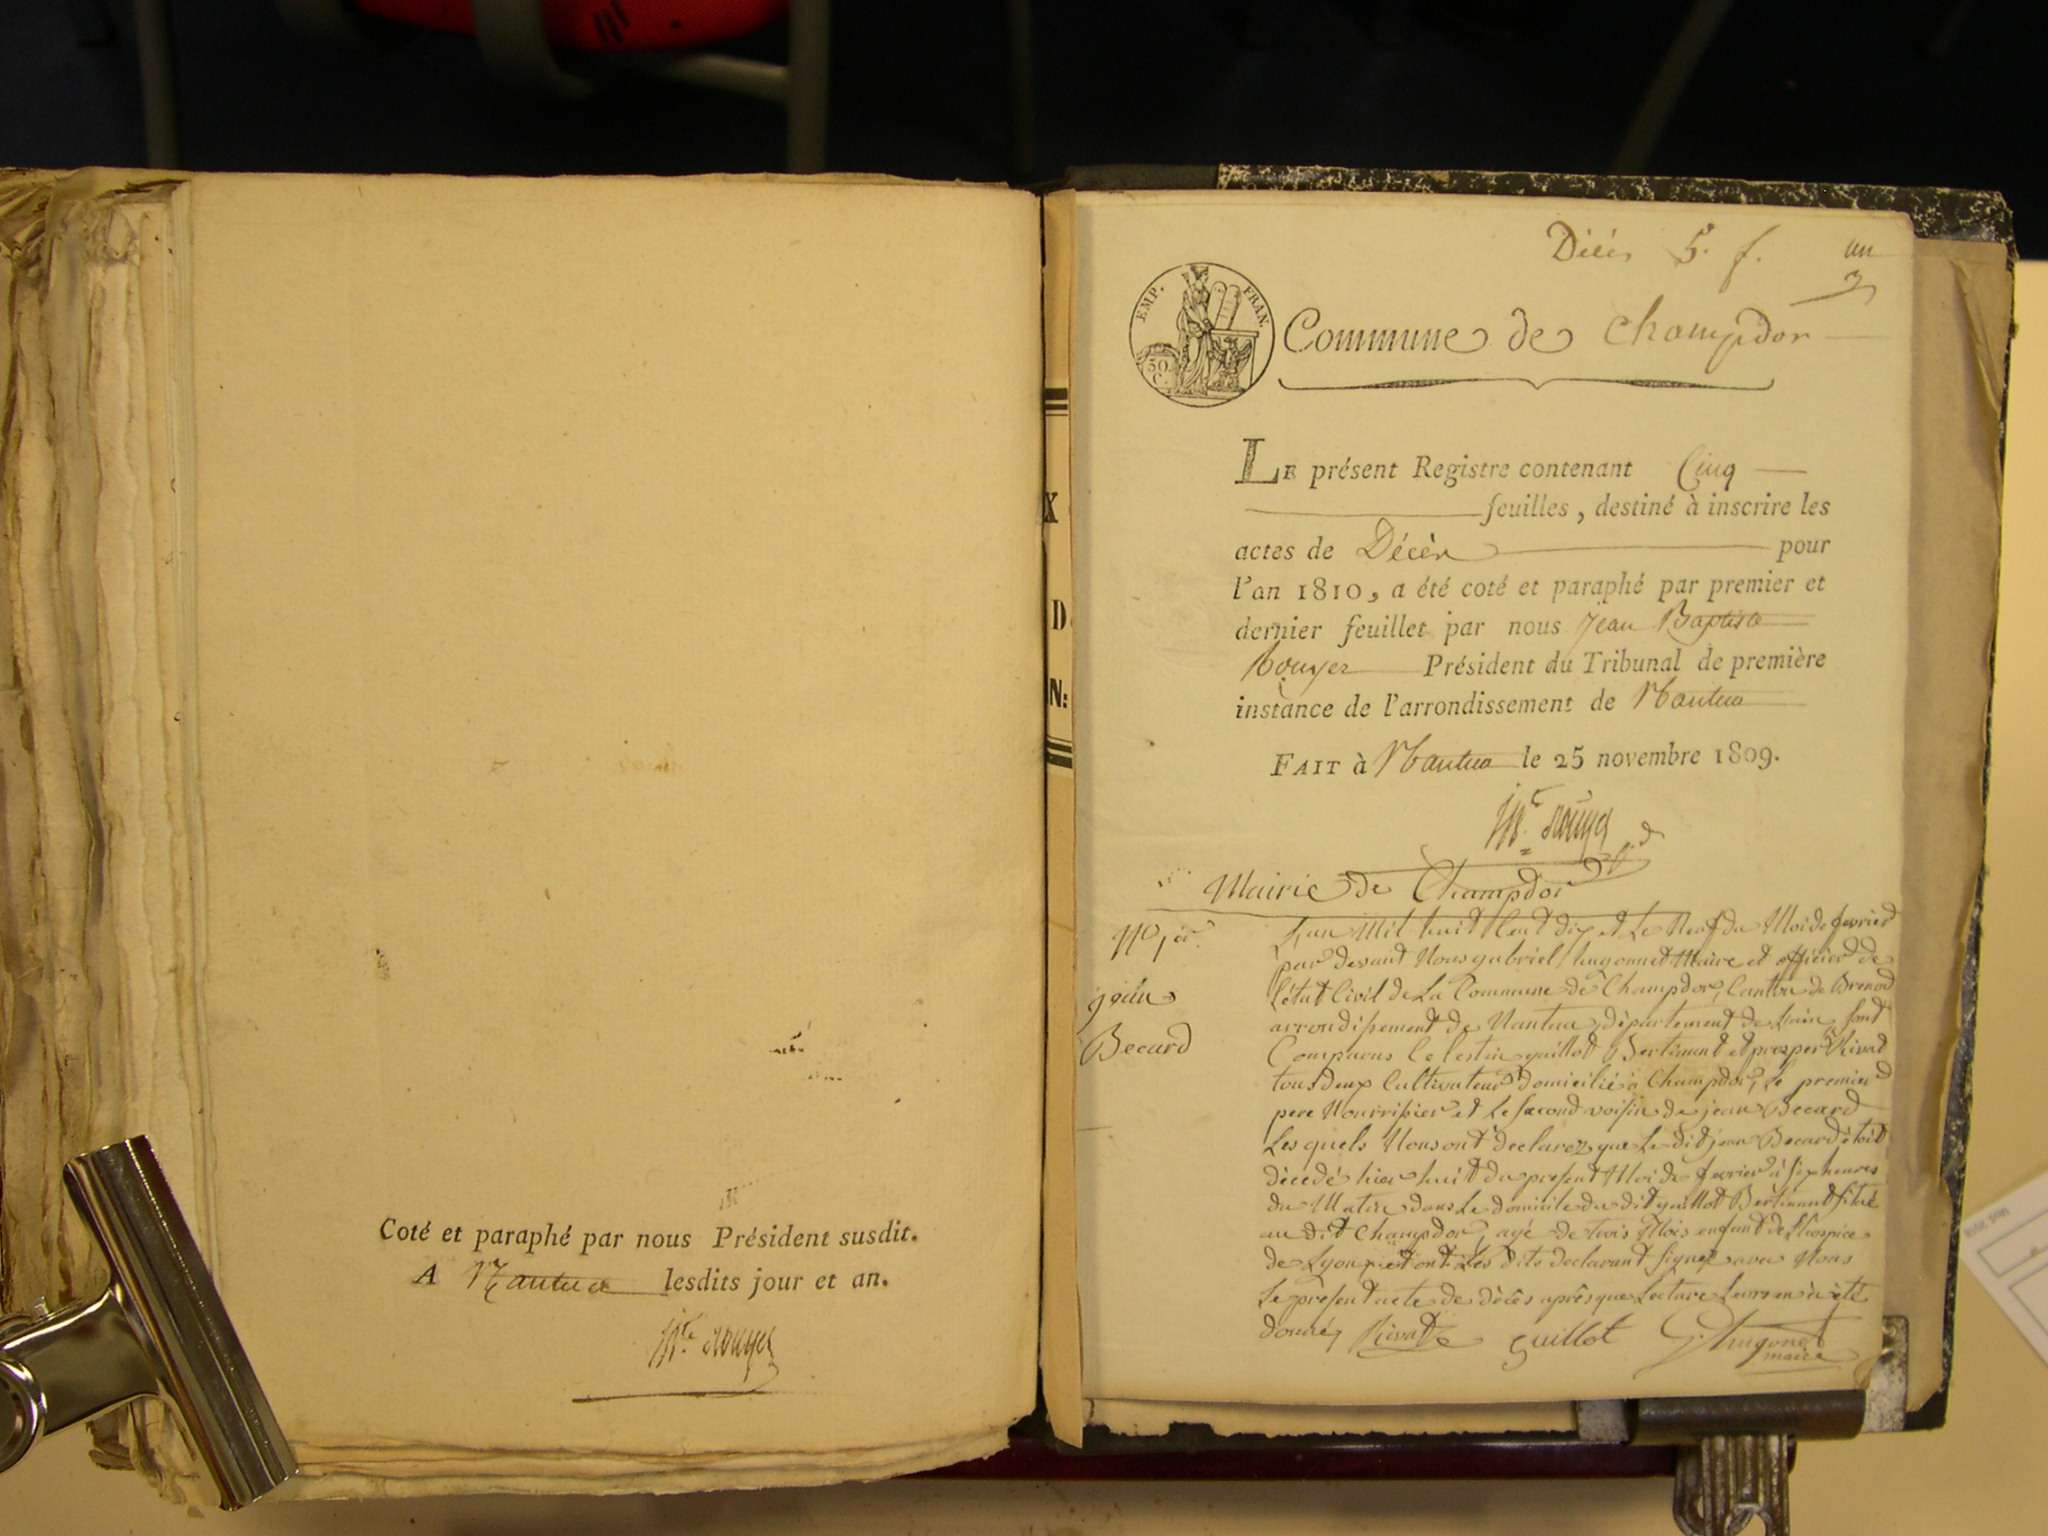 Coté et paraphé par nous Président susdit.
A Nantua lesdits jour et an.
JBte Rouyer
X
D
N:
Décès 5. f. un
EMP. FRAN.
50 C.
Commune de Champdor
LE présent Registre contenant Cinq
feuilles, destiné à inscrire les
actes de Décès pour
l'an 1810, a été coté et paraphé par premier et
dernier feuillet par nous Jean Baptiste
Rouyer Président du Tribunal de première
instance de l'arrondissement de Nantua
FAIT à Nantua le 25 novembre 1809.
JBte Rouyer
Mairie de Champdor
No 1er
jean
Becard
L'an Mil huit Cent dix et Le Neuf du Moi de fevrier
par devant Nous gabriel hugonnet Maire et officier de
L'état Civil de La Commune de Champdor, Canton de Brenod
arrondissement de Nantua, département de Lain, sont
Comparus Celestin guillot Bertinand et prosper Rivat
tous deux Cultivateur domicilié à Champdor, Le premier
pere Nourrissier et Le second voisin de jean Becard
Les quels Nous ont declarez que Le dit jean Becard étoit
décedé hier huit du present Moi de fevrier à six heures
du Matin dans Le domicile du dit guillot Bertinand situé
au dit Champdor, agé de trois Mois enfant de l'hospice
de Lyon, et ont Les dits declarant signez avec Nous
Le present acte de décès après que Lecture Leur en à été
donné, Rivat guillot G. hugonet
maire